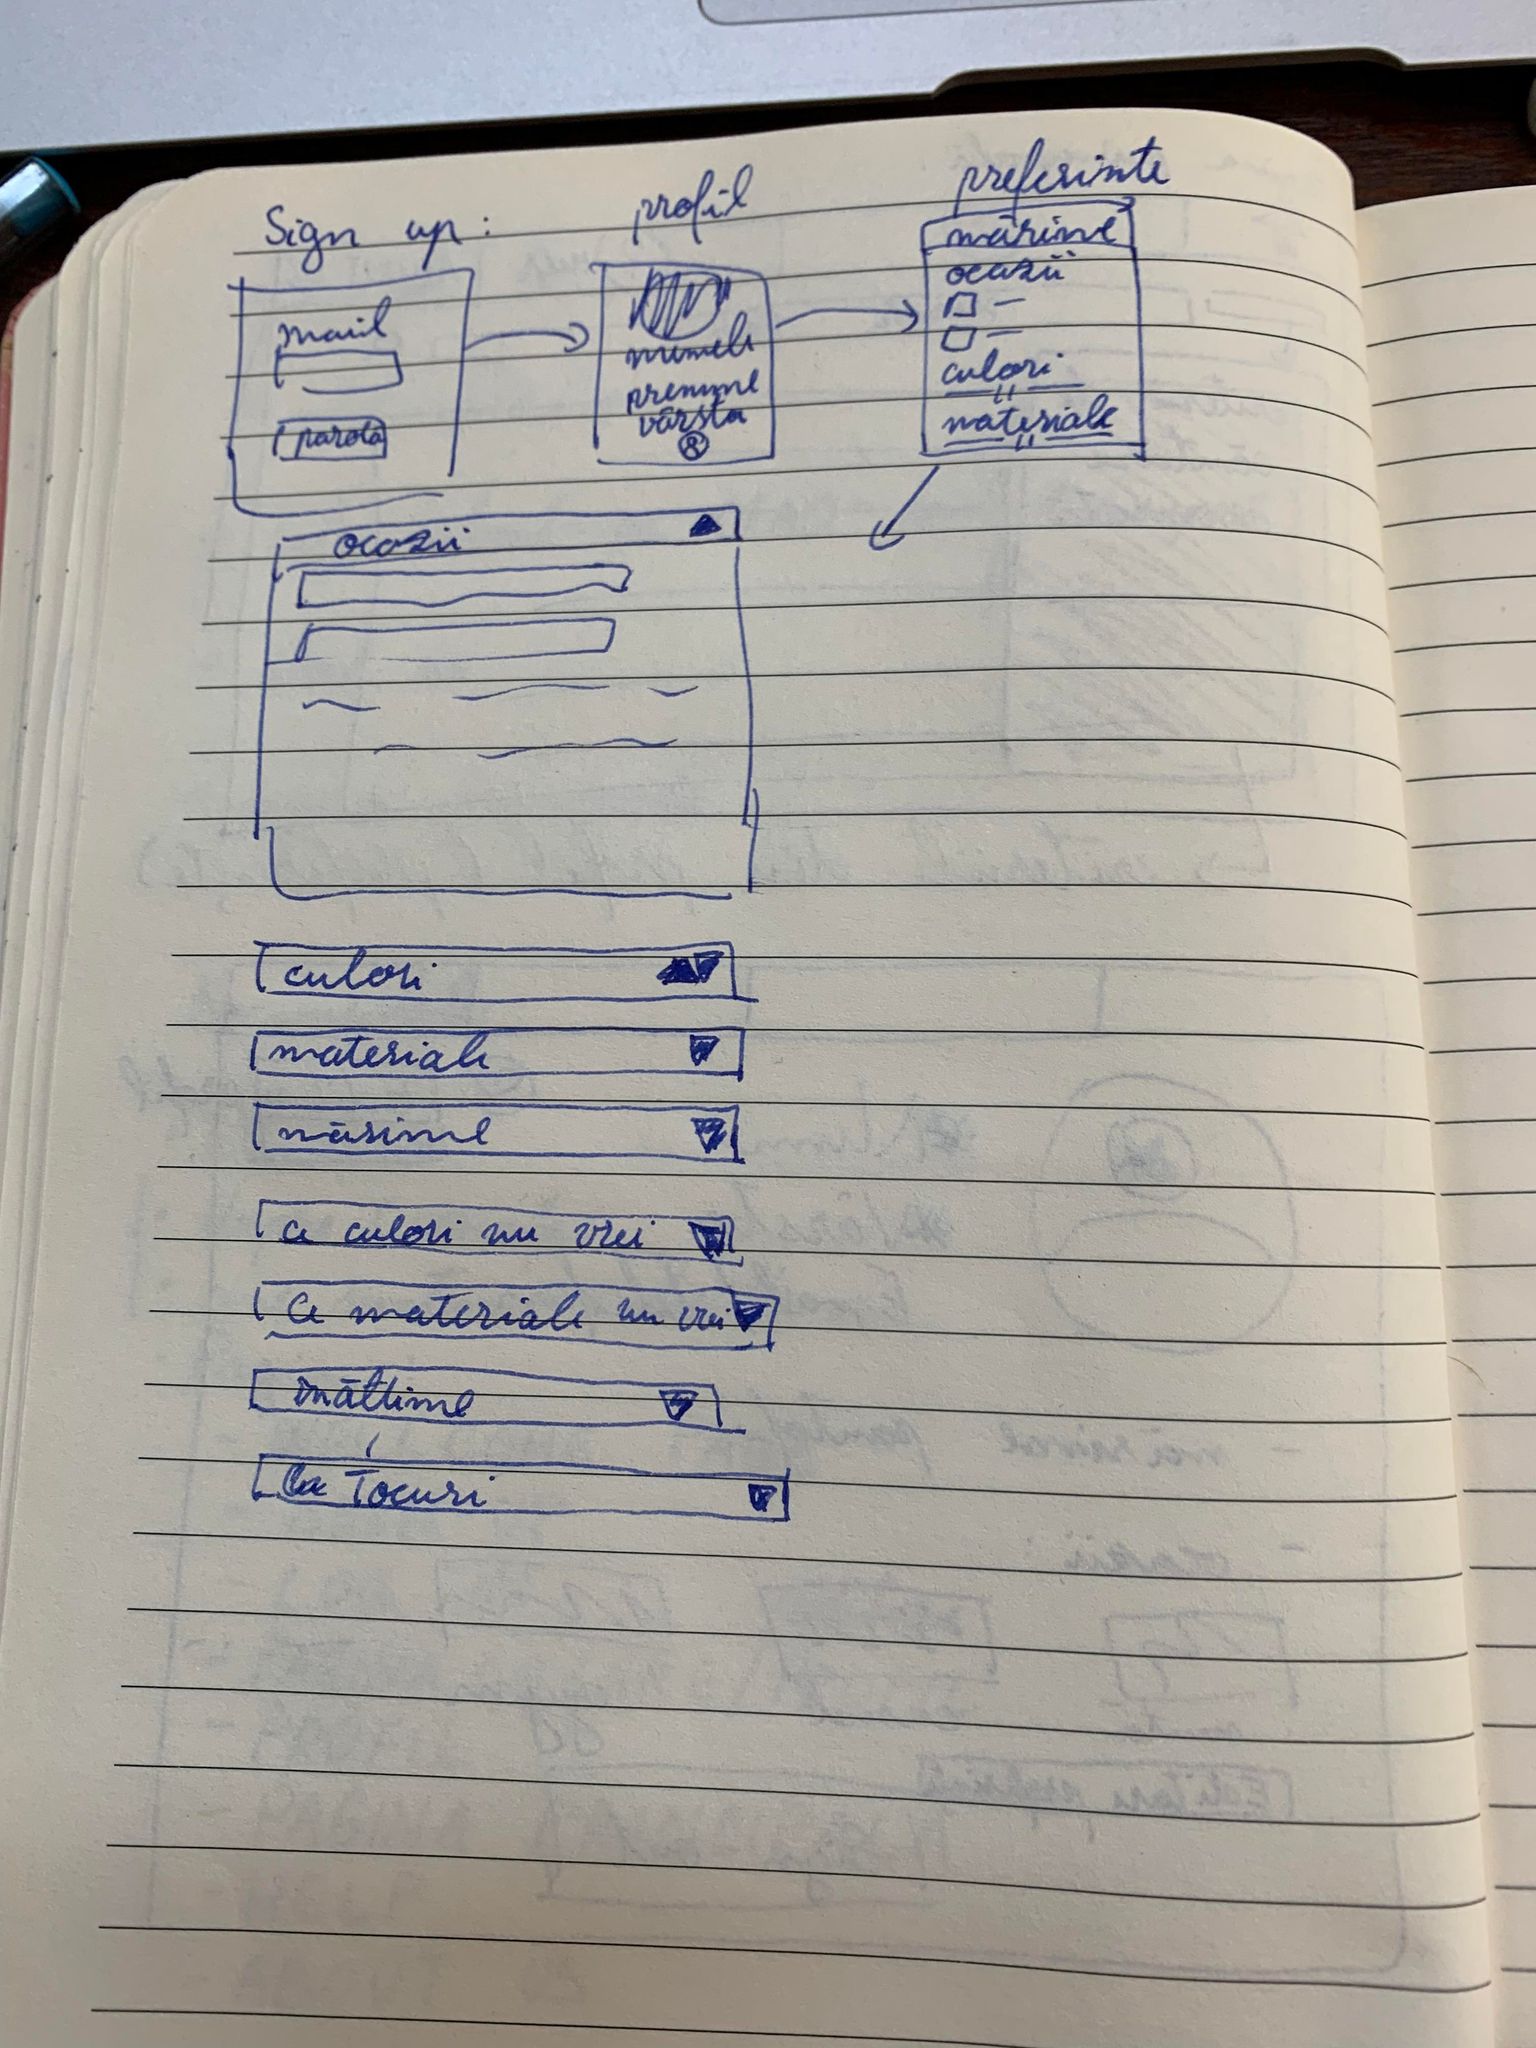 Sign up:
mail
parola
profil
numele
prenume
vârsta
preferinte
mărime
ocazii
culori
materiale
ocazii
culori
materiale
mărime
ce culori nu vrei
ce materiale nu vrei
înăltime
la Tocuri